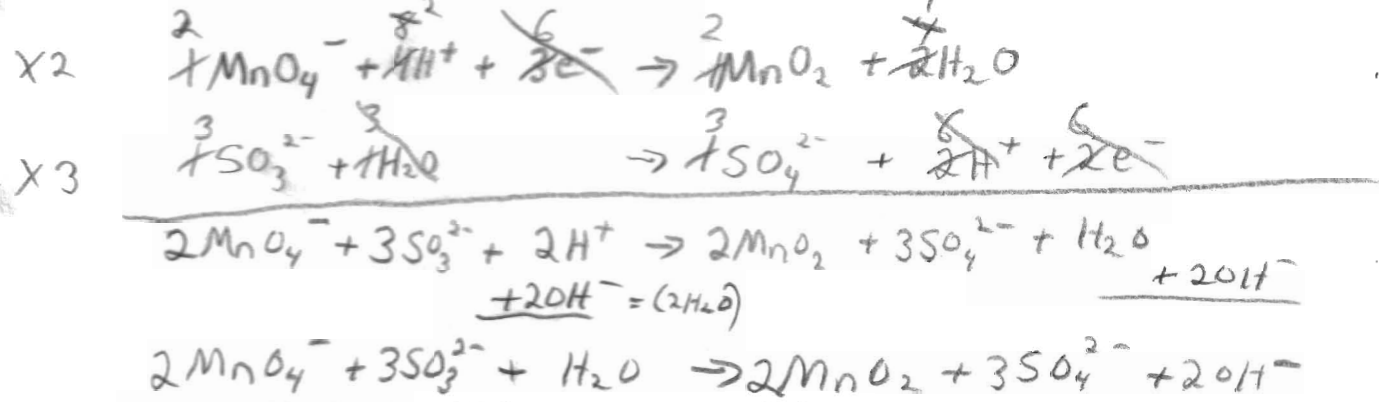 x2 2 1MnO₄⁻ + 8 2 4H⁺ + 6 3e⁻ → 2 1MnO₂ + 1 4 2H₂O
x3 3 1SO₃²⁻ + 3 1H₂O → 3 1SO₄²⁻ + 6 2H⁺ + 6 2e⁻
2MnO₄⁻ + 3SO₃²⁻ + 2H⁺ → 2MnO₂ + 3SO₄²⁻ + H₂O
+2OH⁻ = (2H₂O) + 2OH⁻
2MnO₄⁻ + 3SO₃²⁻ + H₂O → 2MnO₂ + 3SO₄²⁻ + 2OH⁻